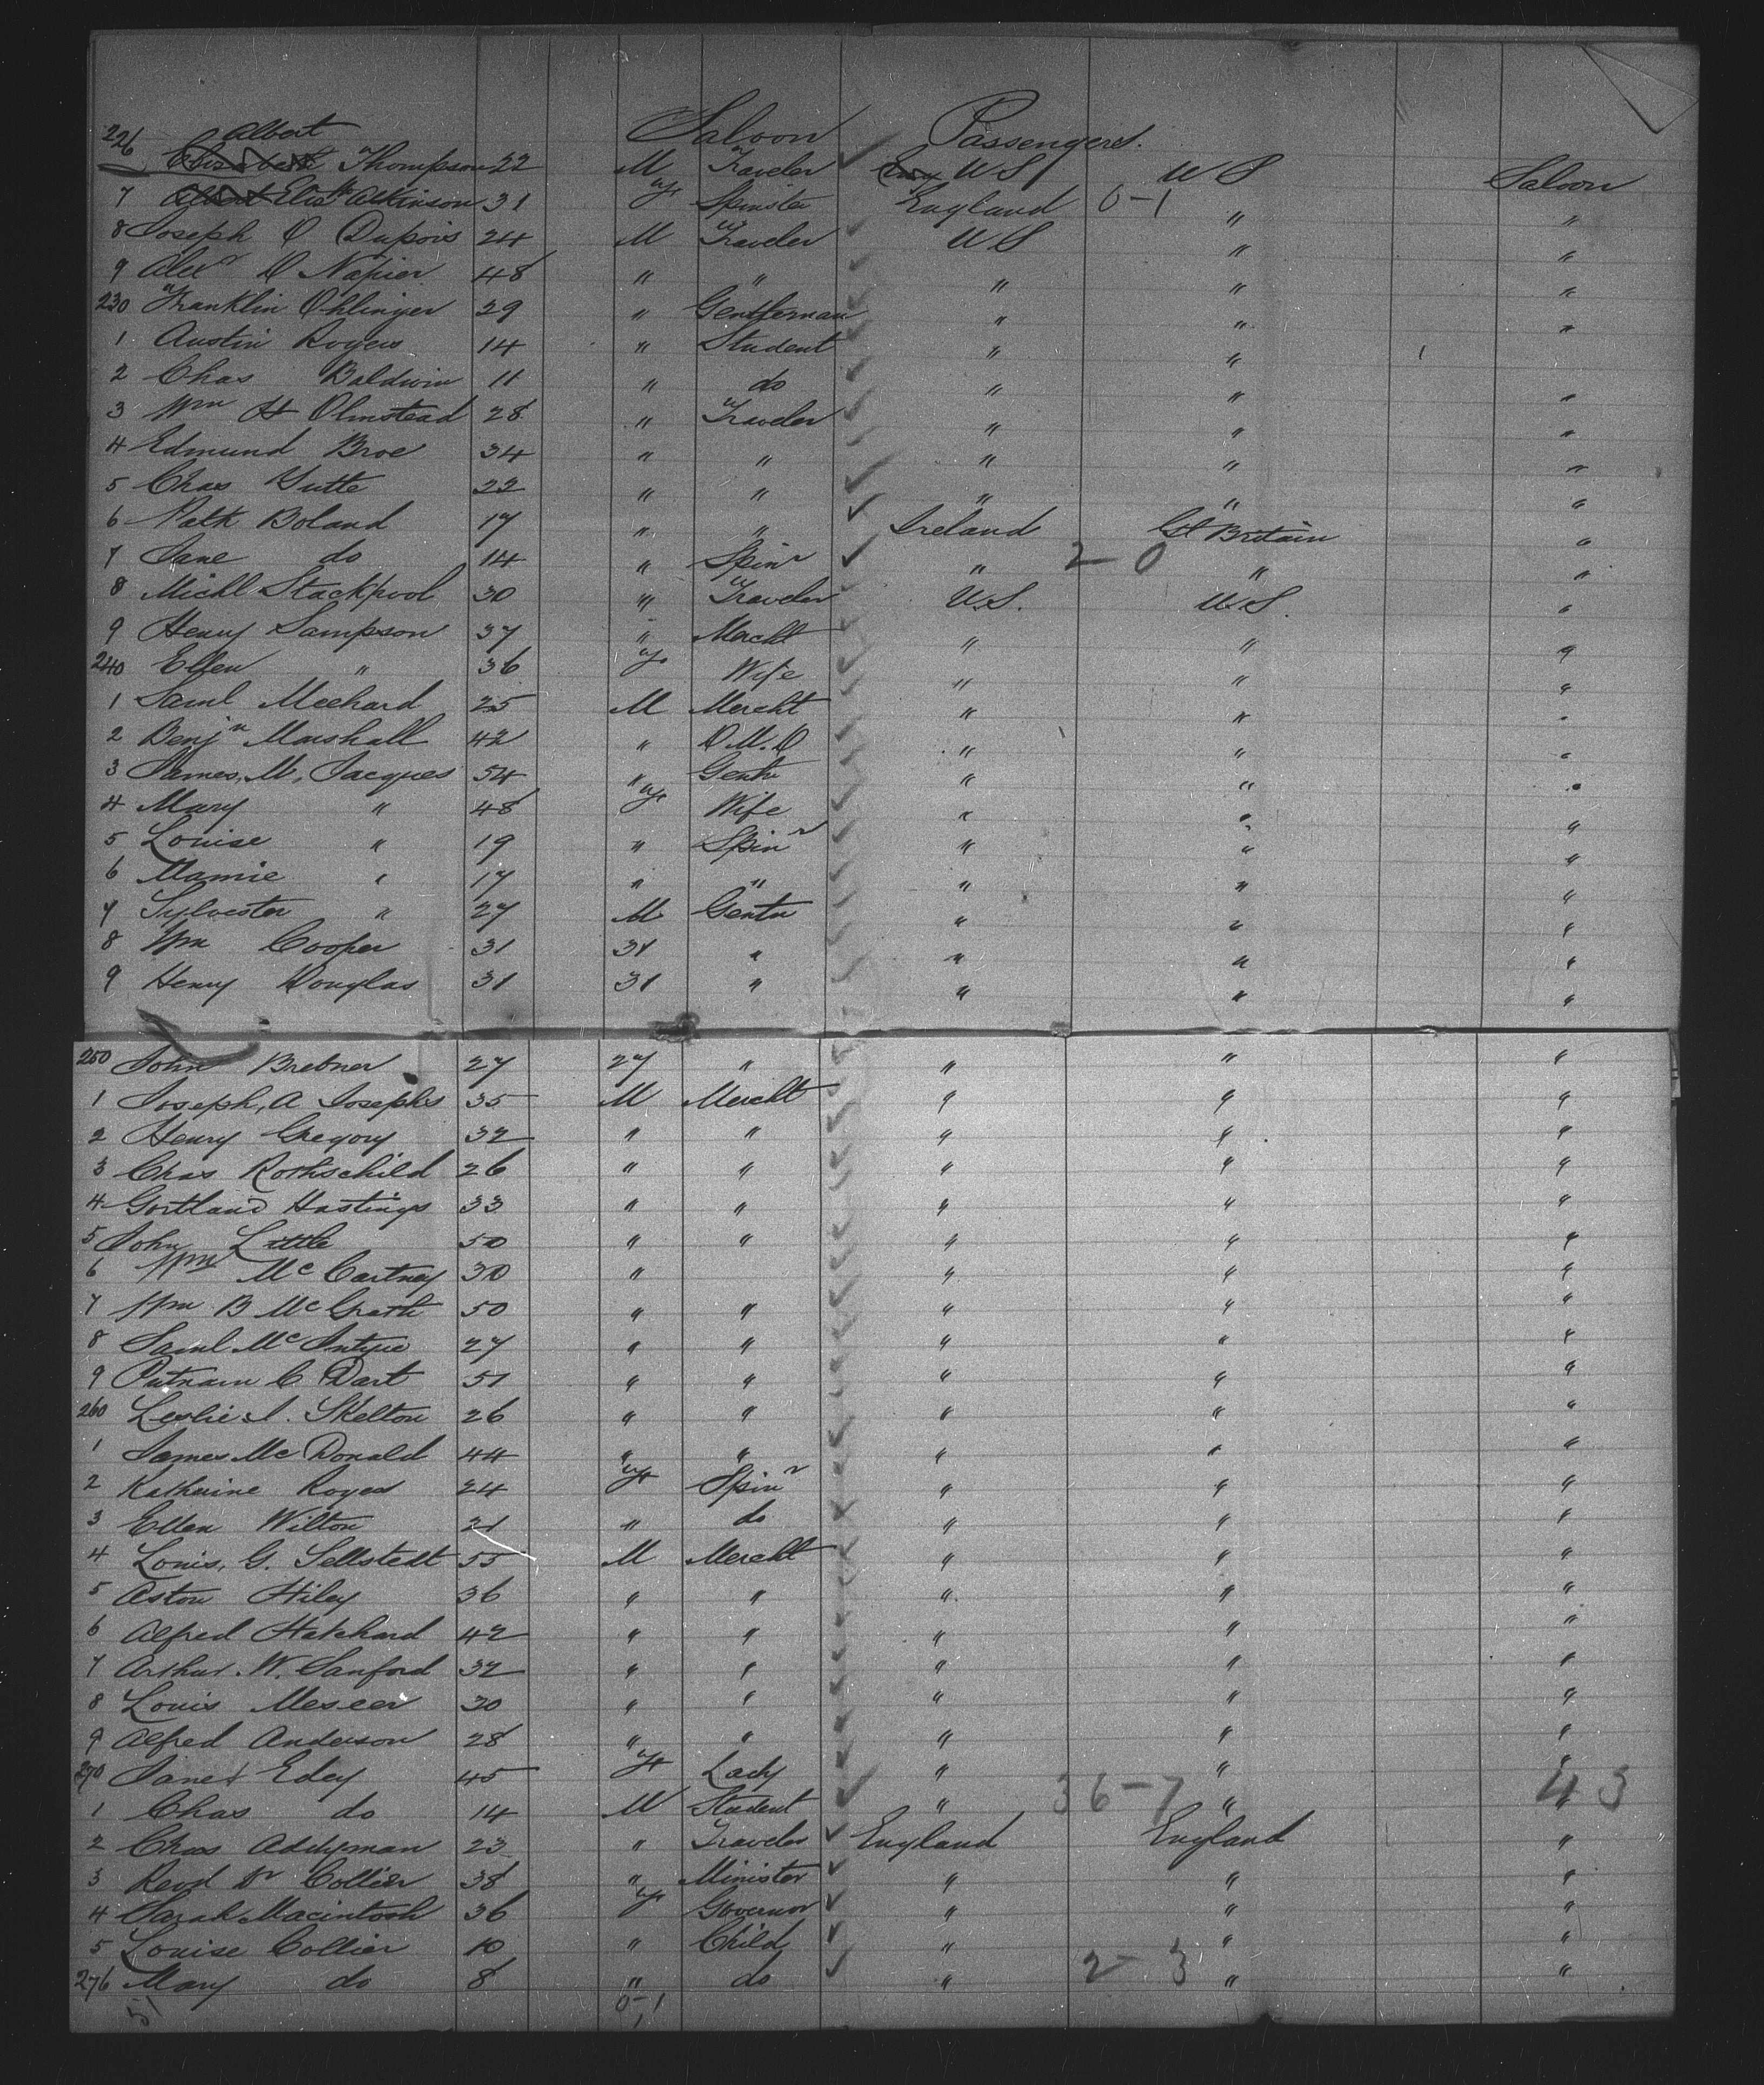 Saloon Passengers.
226 Albert Thompson 22 M Traveler ✓ U S U S Saloon
7 Eliz Atkinson 31 F Spinster England 0-1 " "
8 Joseph D Dupois 24 M Traveler U S " "
9 Alexr D Napier 48 " " " " "
230 Franklin Ohlinger 29 " Gentleman " " "
1 Austin Rogers 14 " Student " "
2 Chas Baldwin 11 " do " " "
3 Wm H Olmstead 28 " Traveler " " "
4 Edmund Broe 34 " " " " "
5 Chas Yutte 22 " " " " "
6 Patk Boland 17 " " Ireland Gt Britain "
7 Jane do 14 " Spinr " 2-0 " "
8 Michl Stackpool 30 " Traveler U.S. U.S. "
9 Henry Sampson 37 " Mercht " " "
240 Ellen " 36 F Wife " " "
1 Saml Meehard 25 M Mercht " " "
2 Benjn Marshall 42 " D.M.D " " "
3 James. M. Jacques 54 " Gentn " " "
4 Mary " 48 F Wife " " "
5 Louise " 19 " Spinr " " "
6 Mamie " 17 " " " " "
7 Sylvester " 27 M Gentn " " "
8 Wm Cooper 31 31 " " " "
9 Henry Douglas 31 31 " " " "
250 John Brebner 27 27 " " " "
1 Joseph, A Josephs 35 M Mercht " " "
2 Henry Gregory 32 " " " " "
3 Chas Rothschild 26 " " " " "
4 Gortland Hastings 33 " " " " "
5 John Little 50 " " " " "
6 Wm McCartney 30 " " " "
7 Wm B McGrath 50 " " " " "
8 Saml McIntyre 27 " " " " "
9 Putnam C Dart 51 " " " " "
260 Leslie J. Skelton 26 " " " " "
1 James McDonald 44 " " " " "
2 Katherine Rogers 24 F Spinr " " "
3 Ellen Wilton 21 " do " " "
4 Louis, G. Sellstedt 55 M Mercht " " "
5 Aston Hiley 36 " " " " "
6 Alfred Hatchard 42 " " " " "
7 Arthur. W. Sanford 32 " " " " "
8 Louis Meseer 30 " " " " "
9 Alfred Anderson 28 " " " " "
270 Janet Edey 45 F Lady " " "
1 Chas do 14 M Student " 36-7 " 43
2 Chas Addyman 23 " Traveler England England "
3 Revd Dr Collier 38 " Minister " " "
4 Sarah Macintosh 36 F Governor " " "
5 Louise Collier 10 " Child " " "
276 Mary do 8 " do " 2-3 " "
51 0-1